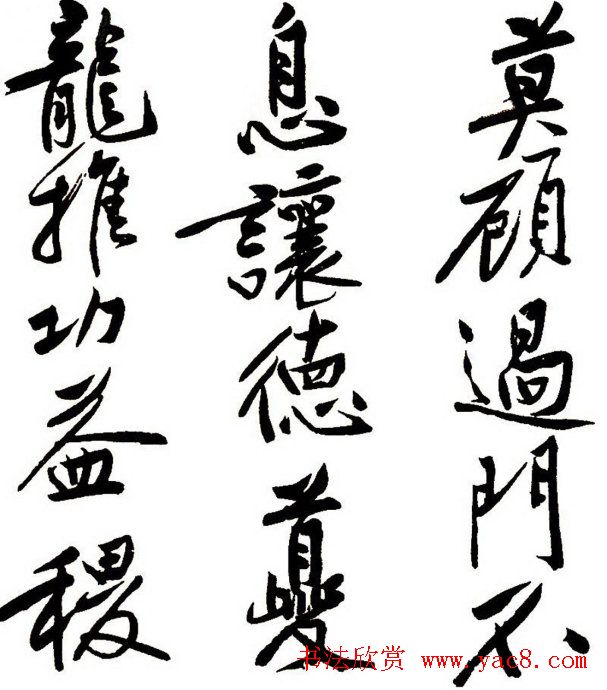 莫顾過門不
息讓德夔
龍推功益稷
书法欣赏 www.yac8.com